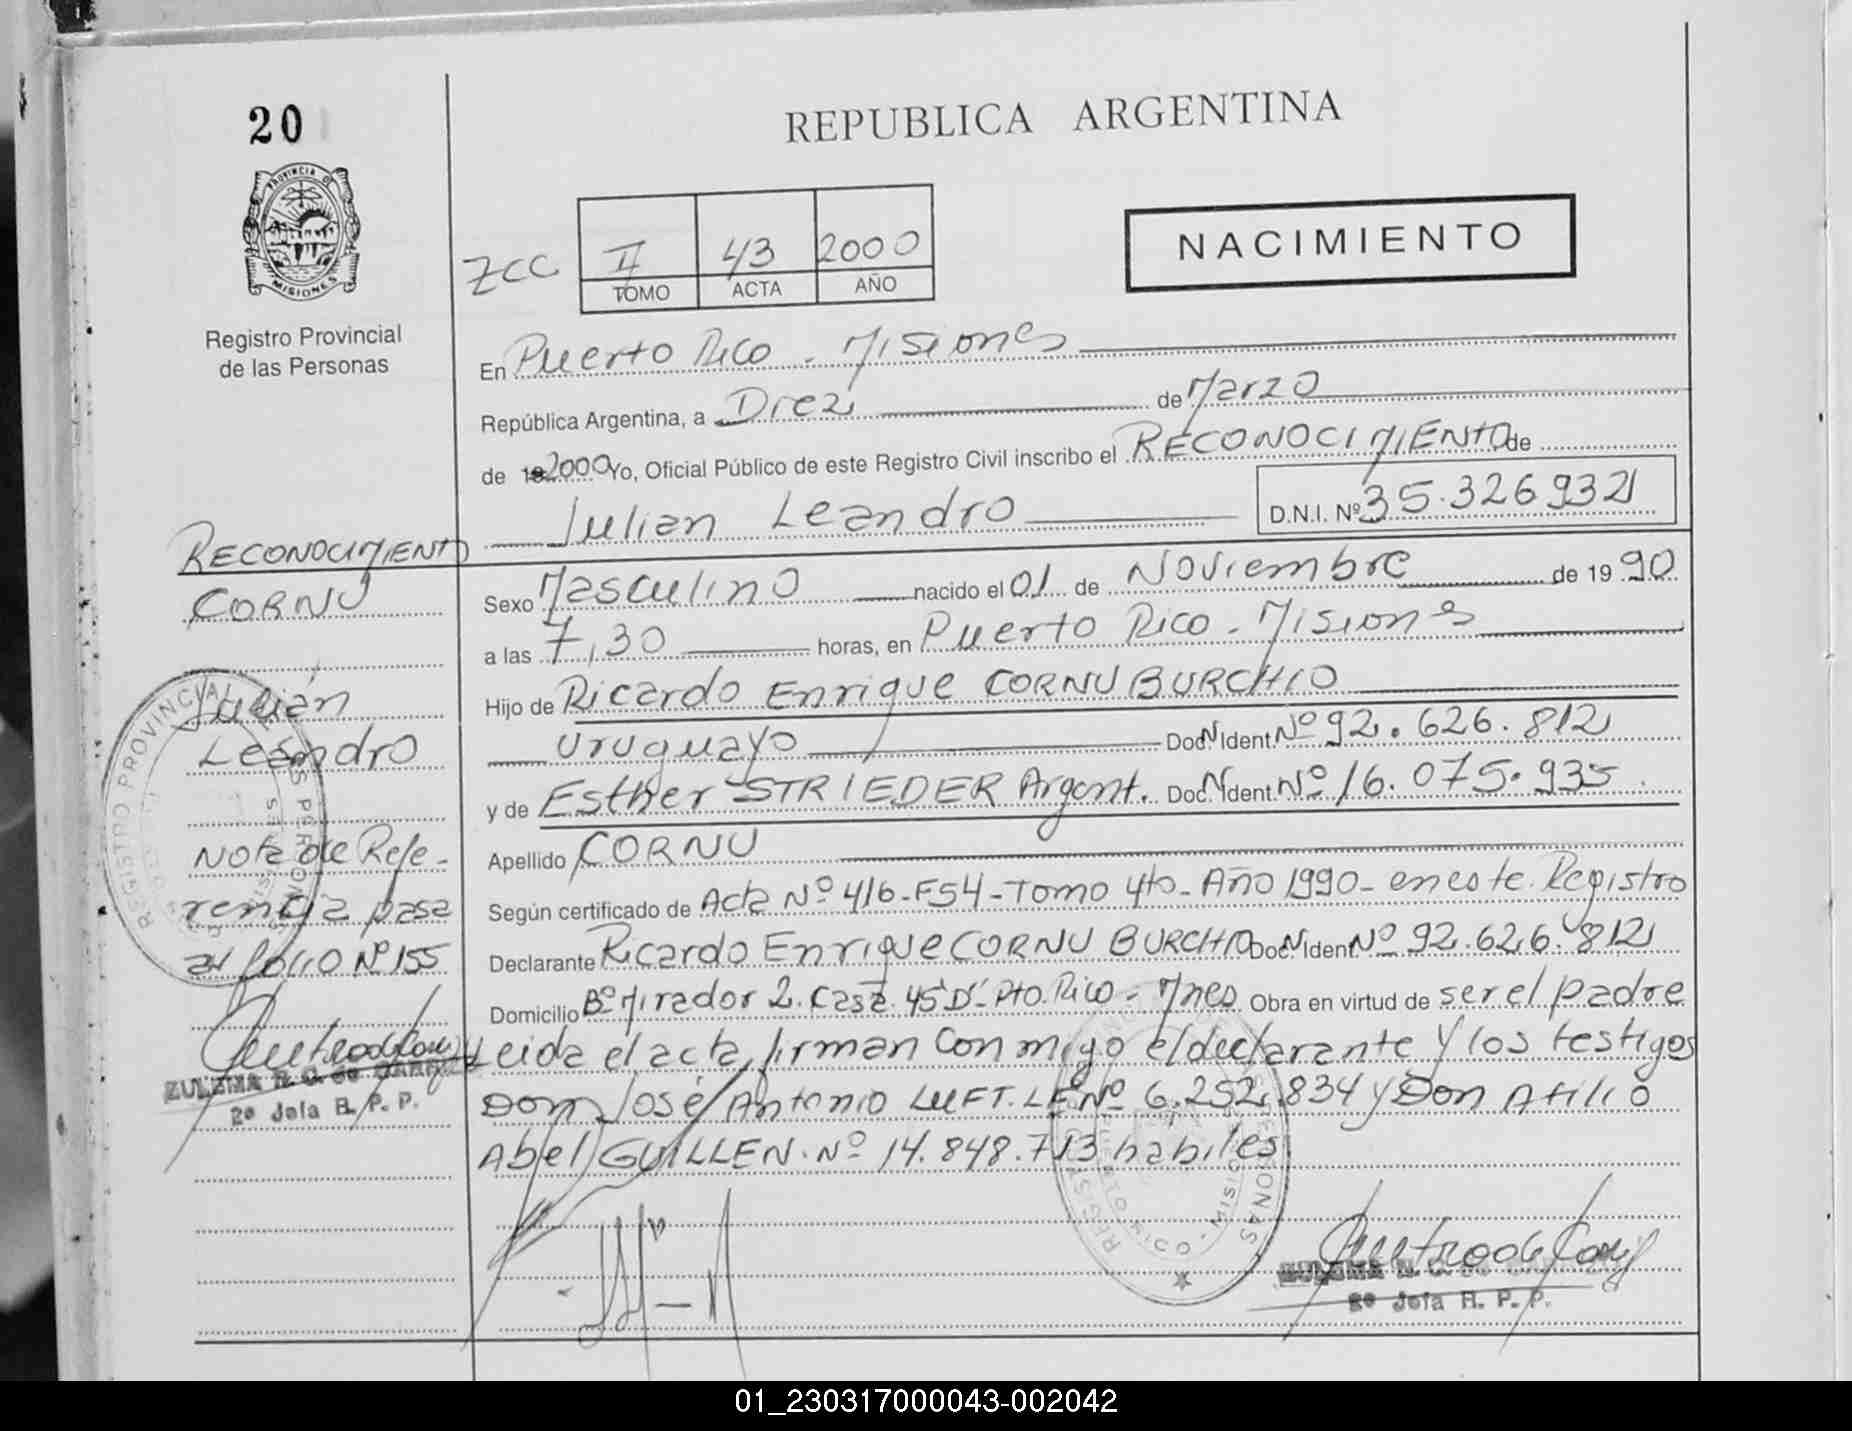 20
REPUBLICA ARGENTINA
PROVINCIA DE
MISIONES
Registro Provincial
de las Personas
ZCC
II 43 2000
TOMO ACTA AÑO
NACIMIENTO
En Puerto Rico - Misiones
República Argentina, a Diez de Marzo
de 2000 Yo, Oficial Público de este Registro Civil inscribo el RECONOCIMIENTO de
Julian Leandro D.N.I. Nº 35.326932
RECONOCIMIENTO
CORNU
Julian
Leandro
Nota de Refe-
rencia pasa
al folio Nº 155
2º Jefa R. P. P.
Sexo Masculino nacido el 01 de Noviembre de 1990
a las 7,30 horas, en Puerto Rico - Misiones
Hijo de Ricardo Enrique CORNU BURCHIO
Uruguayo Doc. N Ident. Nº 92.626.812
y de Esther STRIEDER Argent. Doc. N Ident. Nº 16.075.935
Apellido CORNU
Según certificado de Acta Nº 416-F54-Tomo 4to-Año 1990-en este Registro
Declarante Ricardo Enrique CORNU BURCHIO Doc. N Ident Nº 92.626.812
Domicilio Bº Mirador 2. Casa 45"D"- Pto. Rico - Mnes Obra en virtud de ser el padre
Leida el acta, firman conmigo el declarante y los testigos
Don José Antonio LUFT. LE Nº 6.252.834 y Don Atilio
Abel GUILLEN. Nº 14.848.713 habiles
2º Jefa R. P. P.
01_230317000043-002042